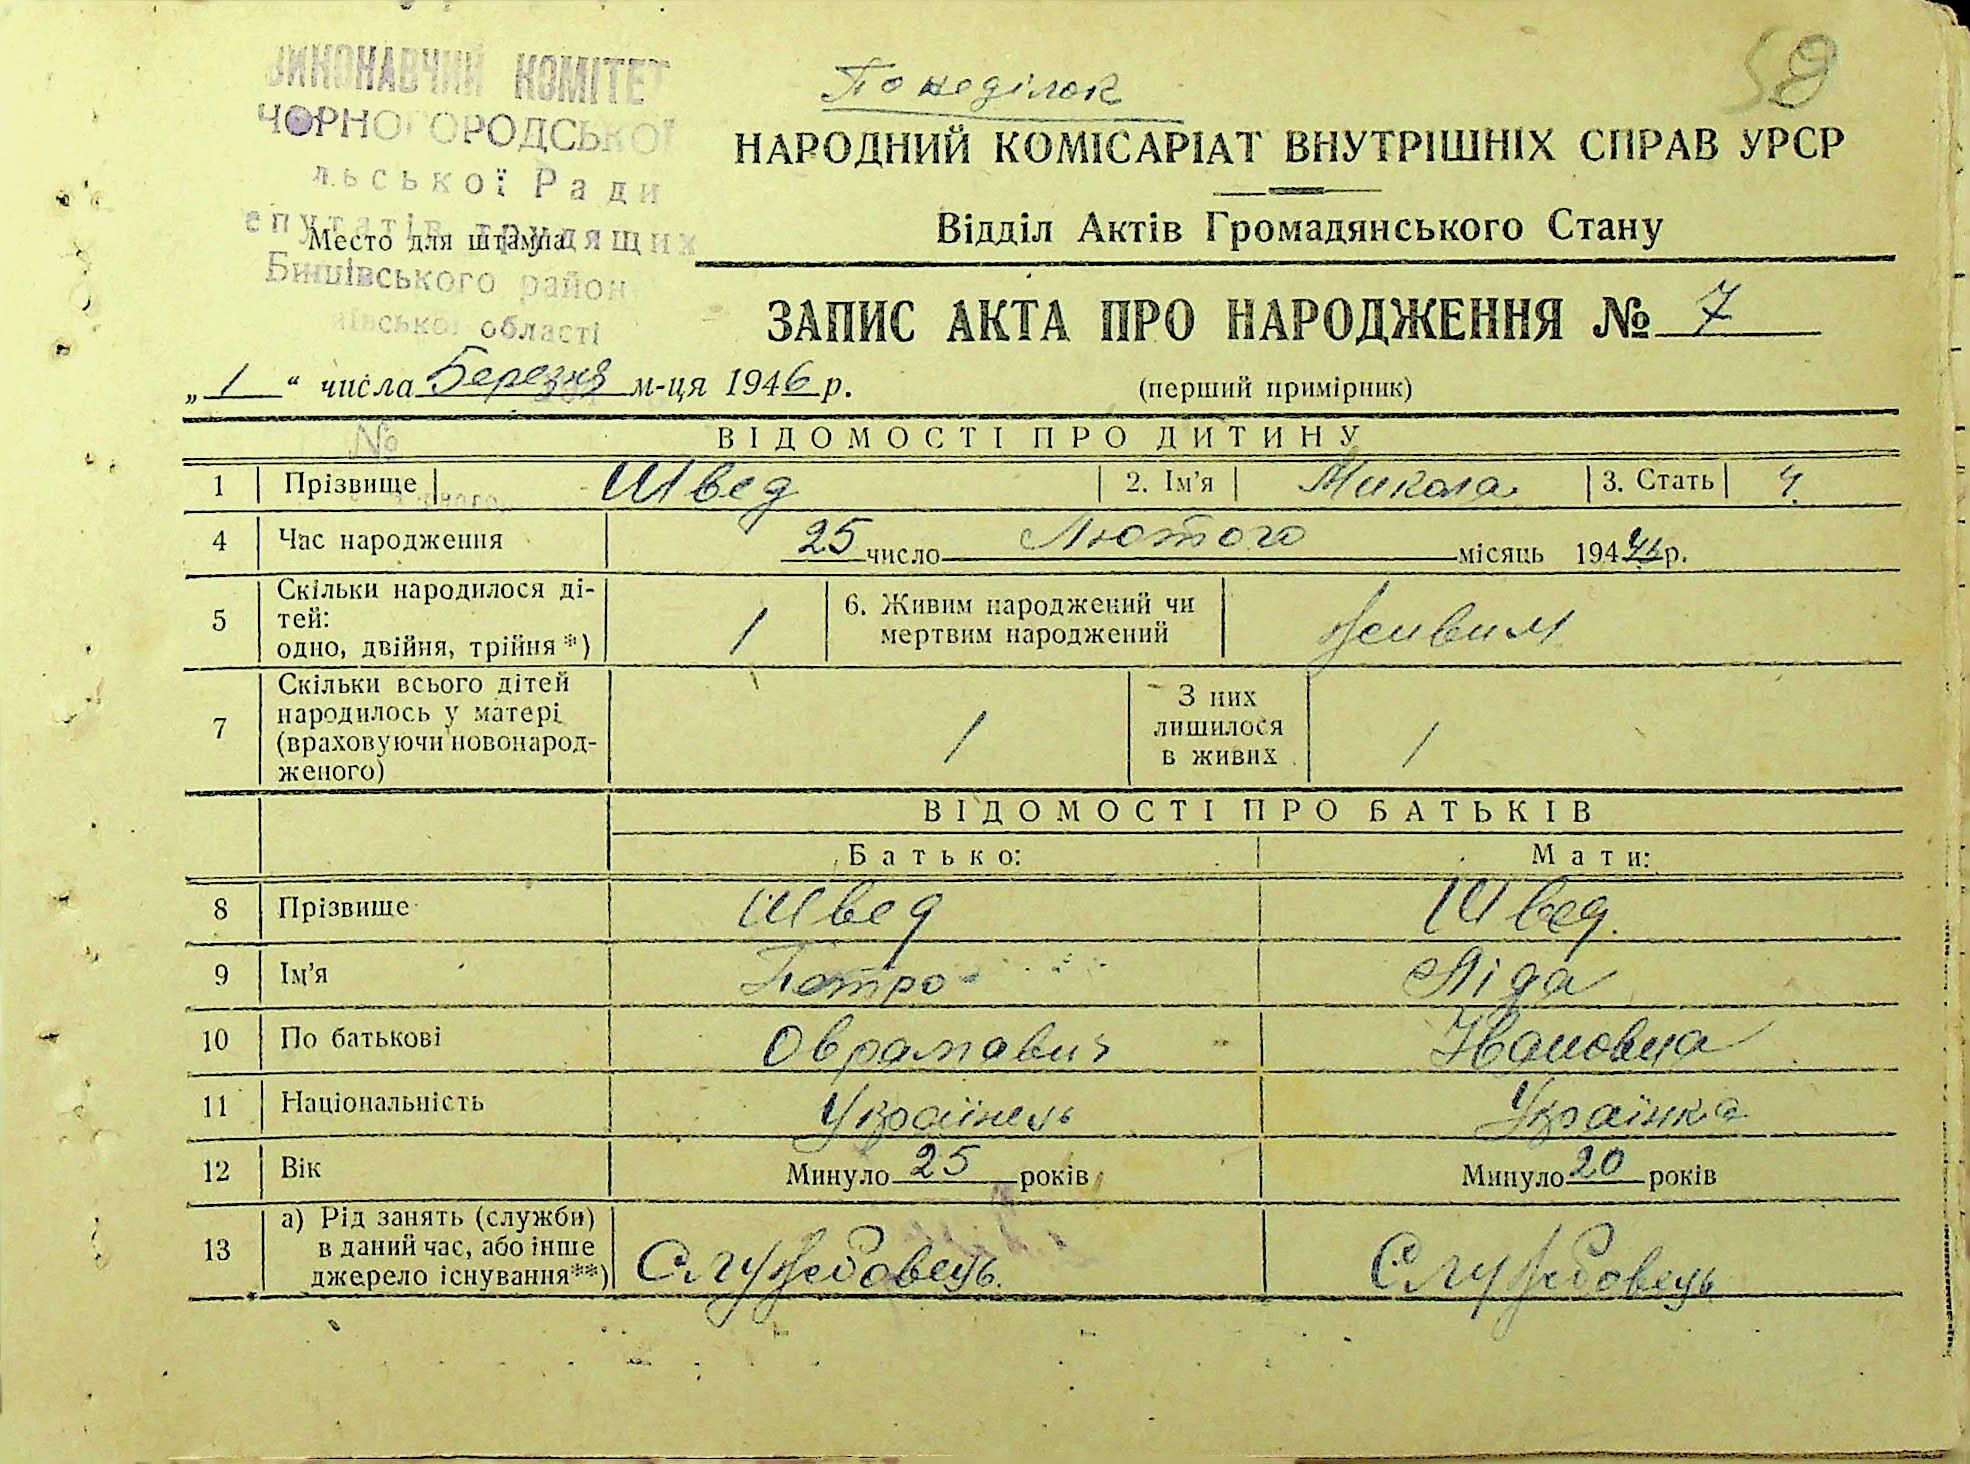 ВИКОНАВЧИЙ КОМІТЕТ
ЧОРНОГОРОДСЬКОЇ
льської Ради
епутатів трудящих
Место для штампа
Бишівського район
ївської області
№
Понеділок
59
НАРОДНИЙ КОМІСАРІАТ ВНУТРІШНІХ СПРАВ УРСР
Відділ Актів Громадянського Стану
ЗАПИС АКТА ПРО НАРОДЖЕННЯ № 7
„ 1 “ числа Березня м-ця 1946 р. (перший примірник)
ВІДОМОСТІ ПРО ДИТИНУ
1 Прізвище Швед 2. Ім'я Микола 3. Стать Ч.
4 Час народження 25 число Лютого місяць 1946 р.
5 Скільки народилося ді-
тей:
одно, двійня, трійня *) 1 6. Живим народжений чи
мертвим народжений Живим
7 Скільки всього дітей
народилось у матері
(враховуючи новонарод-
женого) 1 З них
лишилося
в живих 1
ВІДОМОСТІ ПРО БАТЬКІВ
Батько: Мати:
8 Прізвище Швед Швед.
9 Ім'я Петро Ліда
10 По батькові Оврамавич Івановна
11 Національність Українець Українка
12 Вік Минуло 25 років Минуло 20 років
13 а) Рід занять (служби)
в даний час, або інше
джерело існування**) Службовець. Службовець